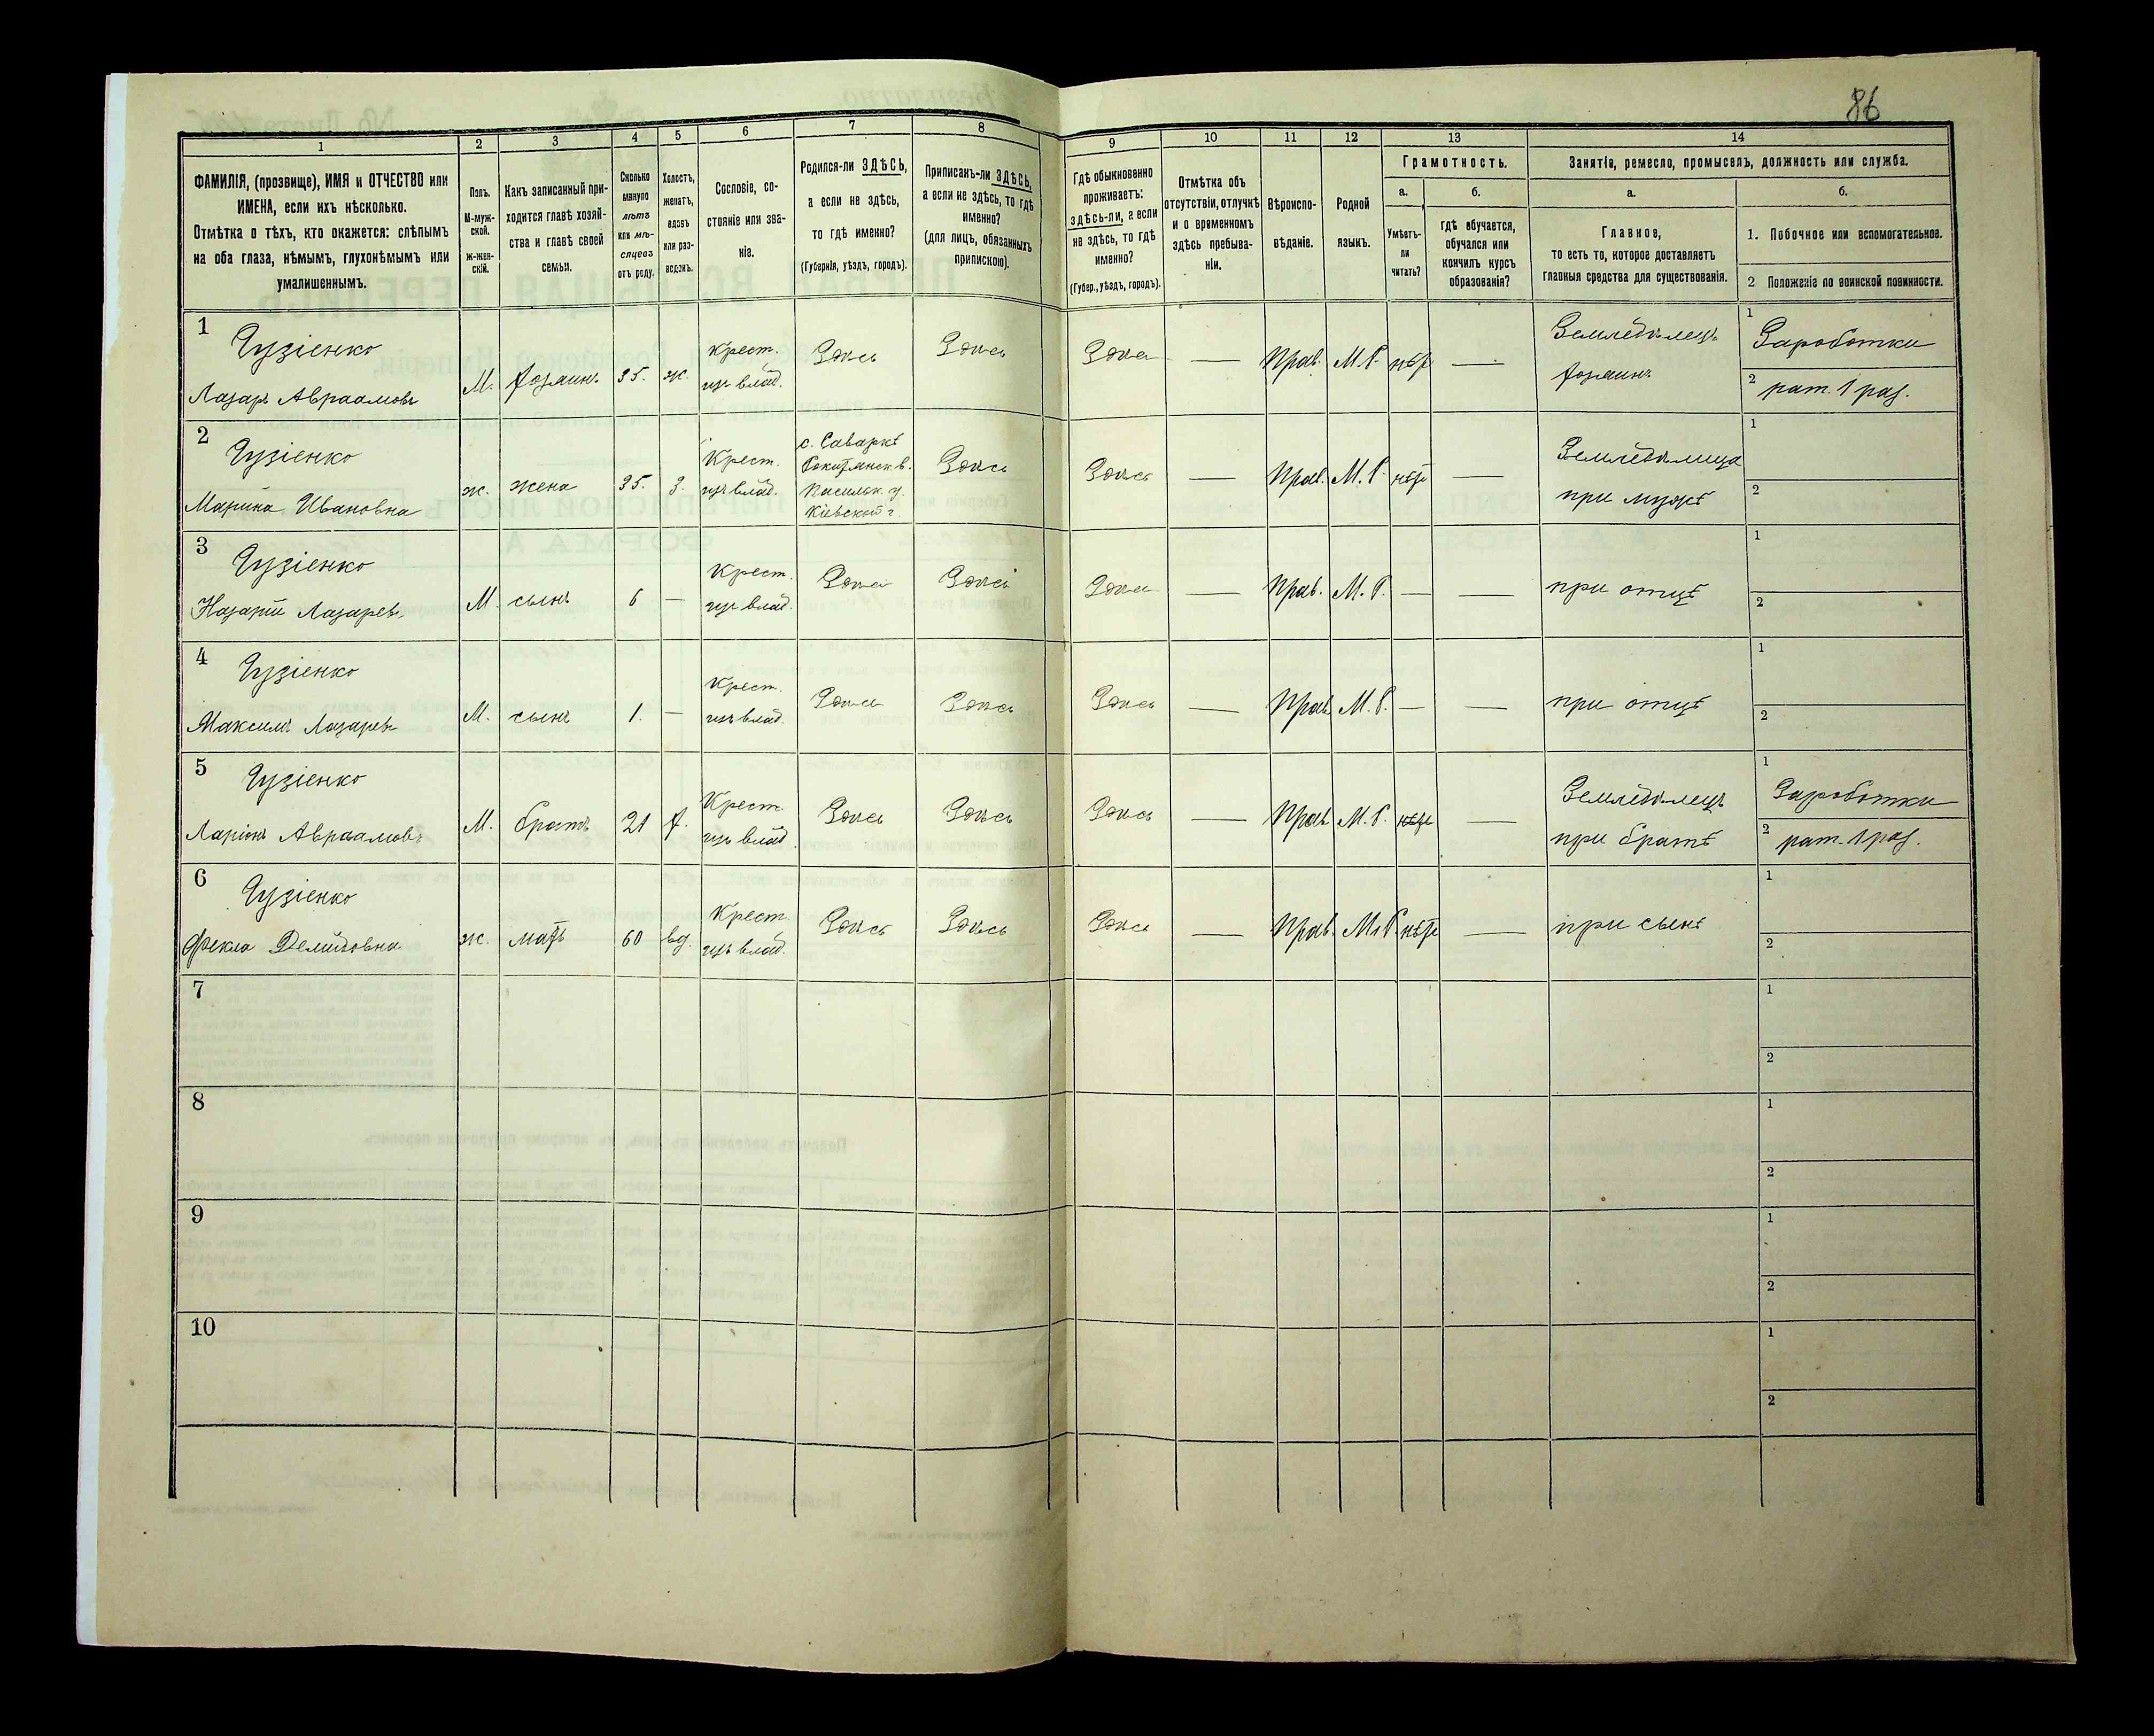 86
1
2
3
4
5
6
7
8
9
10
11
12
13
14
ФАМИЛІЯ, (прозвище), ИМЯ и ОТЧЕСТВО или
ИМЕНА, если ихъ нѣсколько.
Отмѣтка о тѣхъ, кто окажется: слѣпымъ
на оба глаза, нѣмымъ, глухонѣмымъ или
умалишеннымъ.
Полъ.
М-муж-
ской.
Ж-жен-
скій.
Какъ записанный при-
ходится главѣ хозяй-
ства и главѣ своей
семьи.
Сколько
минуло
лѣтъ
или мѣ-
сяцевъ
отъ роду.
Холостъ,
женатъ,
вдовъ
или раз-
веденъ.
Сословіе, со-
стояніе или зва-
ніе.
Родился-ли ЗДѢСЬ,
а если не здѣсь,
то гдѣ именно?
(Губернія, уѣздъ, городъ).
Приписанъ-ли ЗДѢСЬ,
а если не здѣсь, то гдѣ
именно?
(для лицъ, обязанныхъ
припискою).
Гдѣ обыкновенно
проживаетъ:
здѣсь-ли, а если
не здѣсь, то гдѣ
именно?
(Губер., уѣздъ, городъ).
Отмѣтка объ
отсутствіи, отлучкѣ
и о временномъ
здѣсь пребыва-
ніи.
Вѣроиспо-
вѣданіе.
Родной
языкъ.
Грамотность.
а.
б.
Умѣетъ-
ли
читать?
Гдѣ обучается,
обучался или
кончилъ курсъ
образованія?
Занятія, ремесло, промыселъ, должность или служба.
а.
б.
Главное,
то есть то, которое доставляетъ
главныя средства для существованія.
1. Побочное или вспомогательное.
2 Положеніе по воинской повинности.
1
Гузіенко
Лазарь Авраамовъ
М. хозяинъ 35. ж.
Крест.
изъ влад.
Здѣсь Здѣсь Здѣсь — Прав. М.Р. нѣтъ —
Землѣдѣлецъ
хозяинъ
1
Зароботки
2 рат. 1 раз.
2
Гузіенко
Марина Ивановна
ж. жена 35. З.
Крест.
изъ влад.
с. Саваркѣ
Рокитянск. в.
Васильк. у.
Кіевской г.
Здѣсь Здѣсь — Прав. М.Р. нѣтъ —
Землѣдѣлица
при мужѣ
1
2
3
Гузіенко
Назарій Лазаревъ
М. сынъ 6 —
Крест.
изъ влад.
Здѣсь Здѣсь Здѣсь — Прав. М.Р. — — при отцѣ
1
2
4
Гузіенко
Максимъ Лазаревъ
М. сынъ 1. —
Крест.
изъ влад.
Здѣсь Здѣсь Здѣсь — Прав. М.Р. — — при отцѣ
1
2
5
Гузіенко
Ларіонъ Авраамовъ
М. братъ 21 х.
Крест.
изъ влад.
Здѣсь Здѣсь Здѣсь — Прав. М.Р. нѣтъ —
Землѣдѣлецъ
при братѣ
1
Зароботки
2 рат. 1 раз.
6
Гузіенко
Фекла Демидовна
ж. мать 60 вд.
Крест.
изъ влад.
Здѣсь Здѣсь Здѣсь — Прав. М.Р. нѣтъ — при сынѣ
1
2
7
1
2
8
1
2
9
1
2
10
1
2